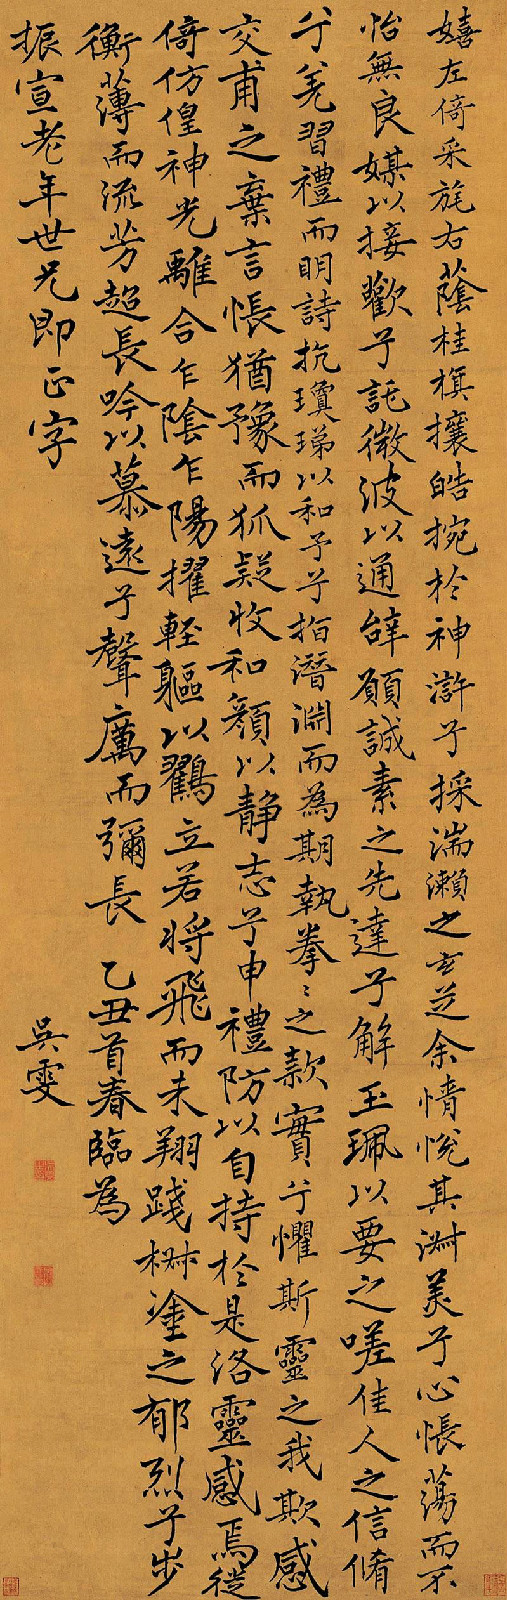 嬉左倚采旄右蔭桂旗攘皓捥於神滸兮採湍瀨之玄芝余情悅其淑美兮心悵蕩而不
怡無良媒以接歡兮託微波以通辭願誠素之先達兮解玉珮以要之嗟佳人之信脩
兮羌習禮而明詩抗瓊珶以和予兮指潛淵而為期執拳〻之款實兮懼斯靈之我欺感
交甫之棄言悵猶豫而狐疑收和顏以靜志兮申禮防以自持於是洛靈感焉徙
倚仿偟神光離合乍陰乍陽擢輕軀以鶴立若將飛而未翔踐椒塗之郁烈兮步
衡薄而流芳超長吟以慕遠兮聲厲而彌長 乙丑首春臨為
振宣老年世兄即正字
吳雯